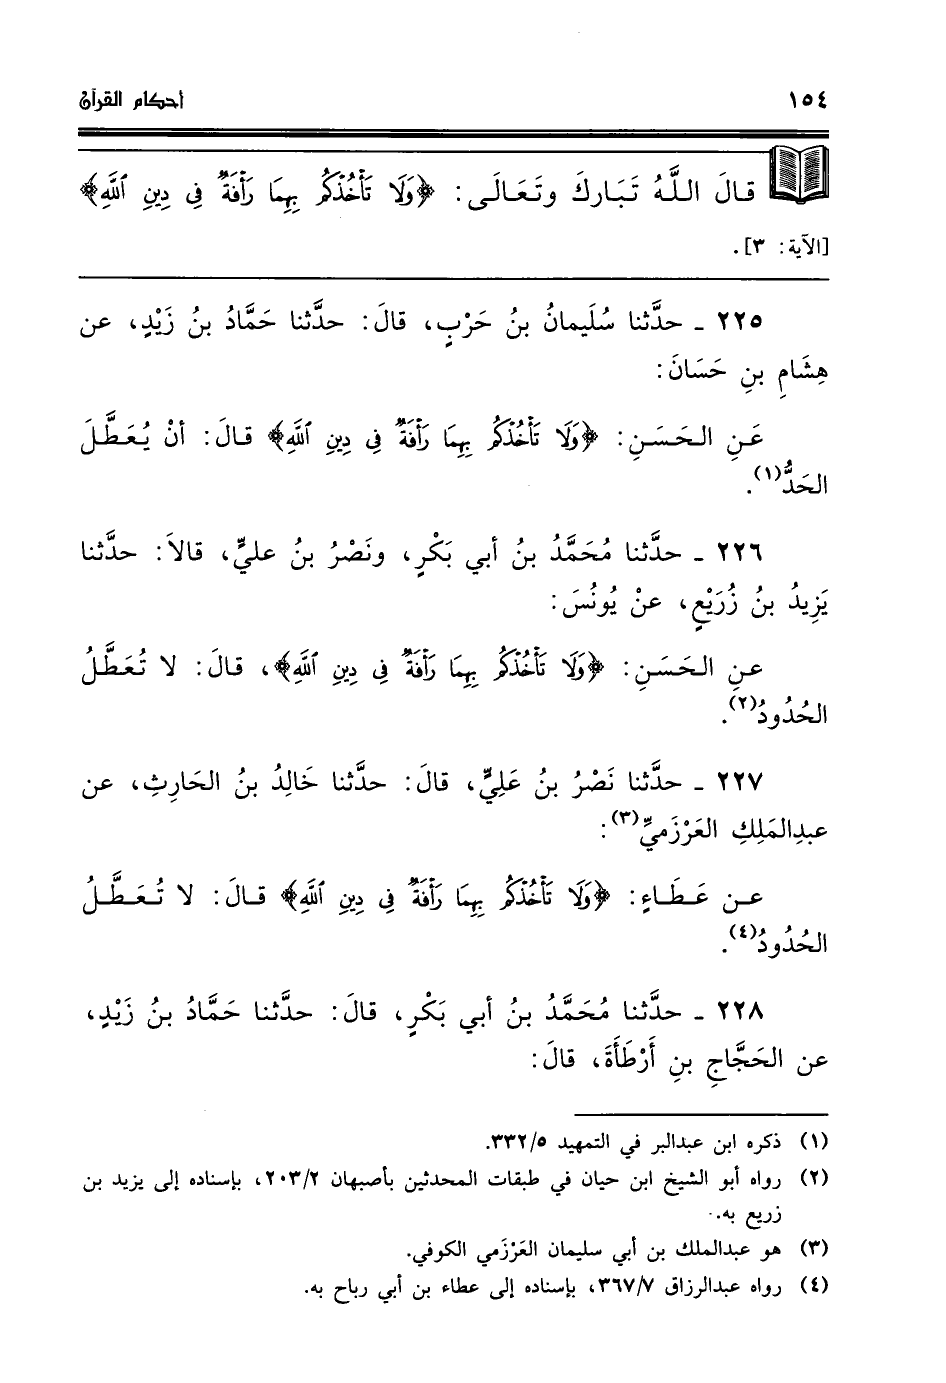 ١٥٤ أحكام القرآن
قالَ اللَّهُ تَبَاركَ وتَعَالَى: ﴿وَلَا تَأْخُذْكُم بِهِمَا رَأْفَةٌ فِي دِينِ ٱللَّهِ﴾
[الآية: ٣].
٢٢٥ ـ حدَّثنا سُلَيمانُ بنُ حَرْبٍ، قالَ: حدَّثنا حَمَّادُ بنُ زَيْدٍ، عن
هِشَامِ بنِ حَسَانَ:
عَنِ الحَسَنِ: ﴿وَلَا تَأْخُذْكُم بِهِمَا رَأْفَةٌ فِي دِينِ ٱللَّهِ﴾ قالَ: أنْ يُعَطَّلَ
الحَدُّ(١).
٢٢٦ ـ حدَّثنا مُحَمَّدُ بنُ أبي بَكْرٍ، ونَصْرُ بنُ عليٍّ، قالاَ: حدَّثنا
يَزِيدُ بنُ زُرَيْعٍ، عنْ يُونُسَ:
عنِ الحَسَنِ: ﴿وَلَا تَأْخُذْكُم بِهِمَا رَأْفَةٌ فِي دِينِ ٱللَّهِ﴾، قالَ: لا تُعَطَّلُ
الحُدُودُ(٢).
٢٢٧ ـ حدَّثنا نَصْرُ بنُ عَلِيٍّ، قالَ: حدَّثنا خَالِدُ بنُ الحَارِثِ، عن
عبدِالمَلِكِ العَرْزَميِّ(٣):
عن عَطَاءٍ: ﴿وَلَا تَأْخُذْكُم بِهِمَا رَأْفَةٌ فِي دِينِ ٱللَّهِ﴾ قالَ: لا تُعَطَّلُ
الحُدُودُ(٤).
٢٢٨ ـ حدَّثنا مُحَمَّدُ بنُ أبي بَكْرٍ، قالَ: حدَّثنا حَمَّادُ بنُ زَيْدٍ،
عن الحَجَّاجِ بنِ أَرْطَأَةَ، قالَ:
(١) ذكره ابن عبدالبر في التمهيد ٣٣٢/٥.
(٢) رواه أبو الشيخ ابن حيان في طبقات المحدثين بأصبهان ٢٠٣/٢، بإسناده إلى يزيد بن
زريع به.
(٣) هو عبدالملك بن أبي سليمان العَرْزَمي الكوفي.
(٤) رواه عبدالرزاق ٣٦٧/٧، بإسناده إلى عطاء بن أبي رباح به.